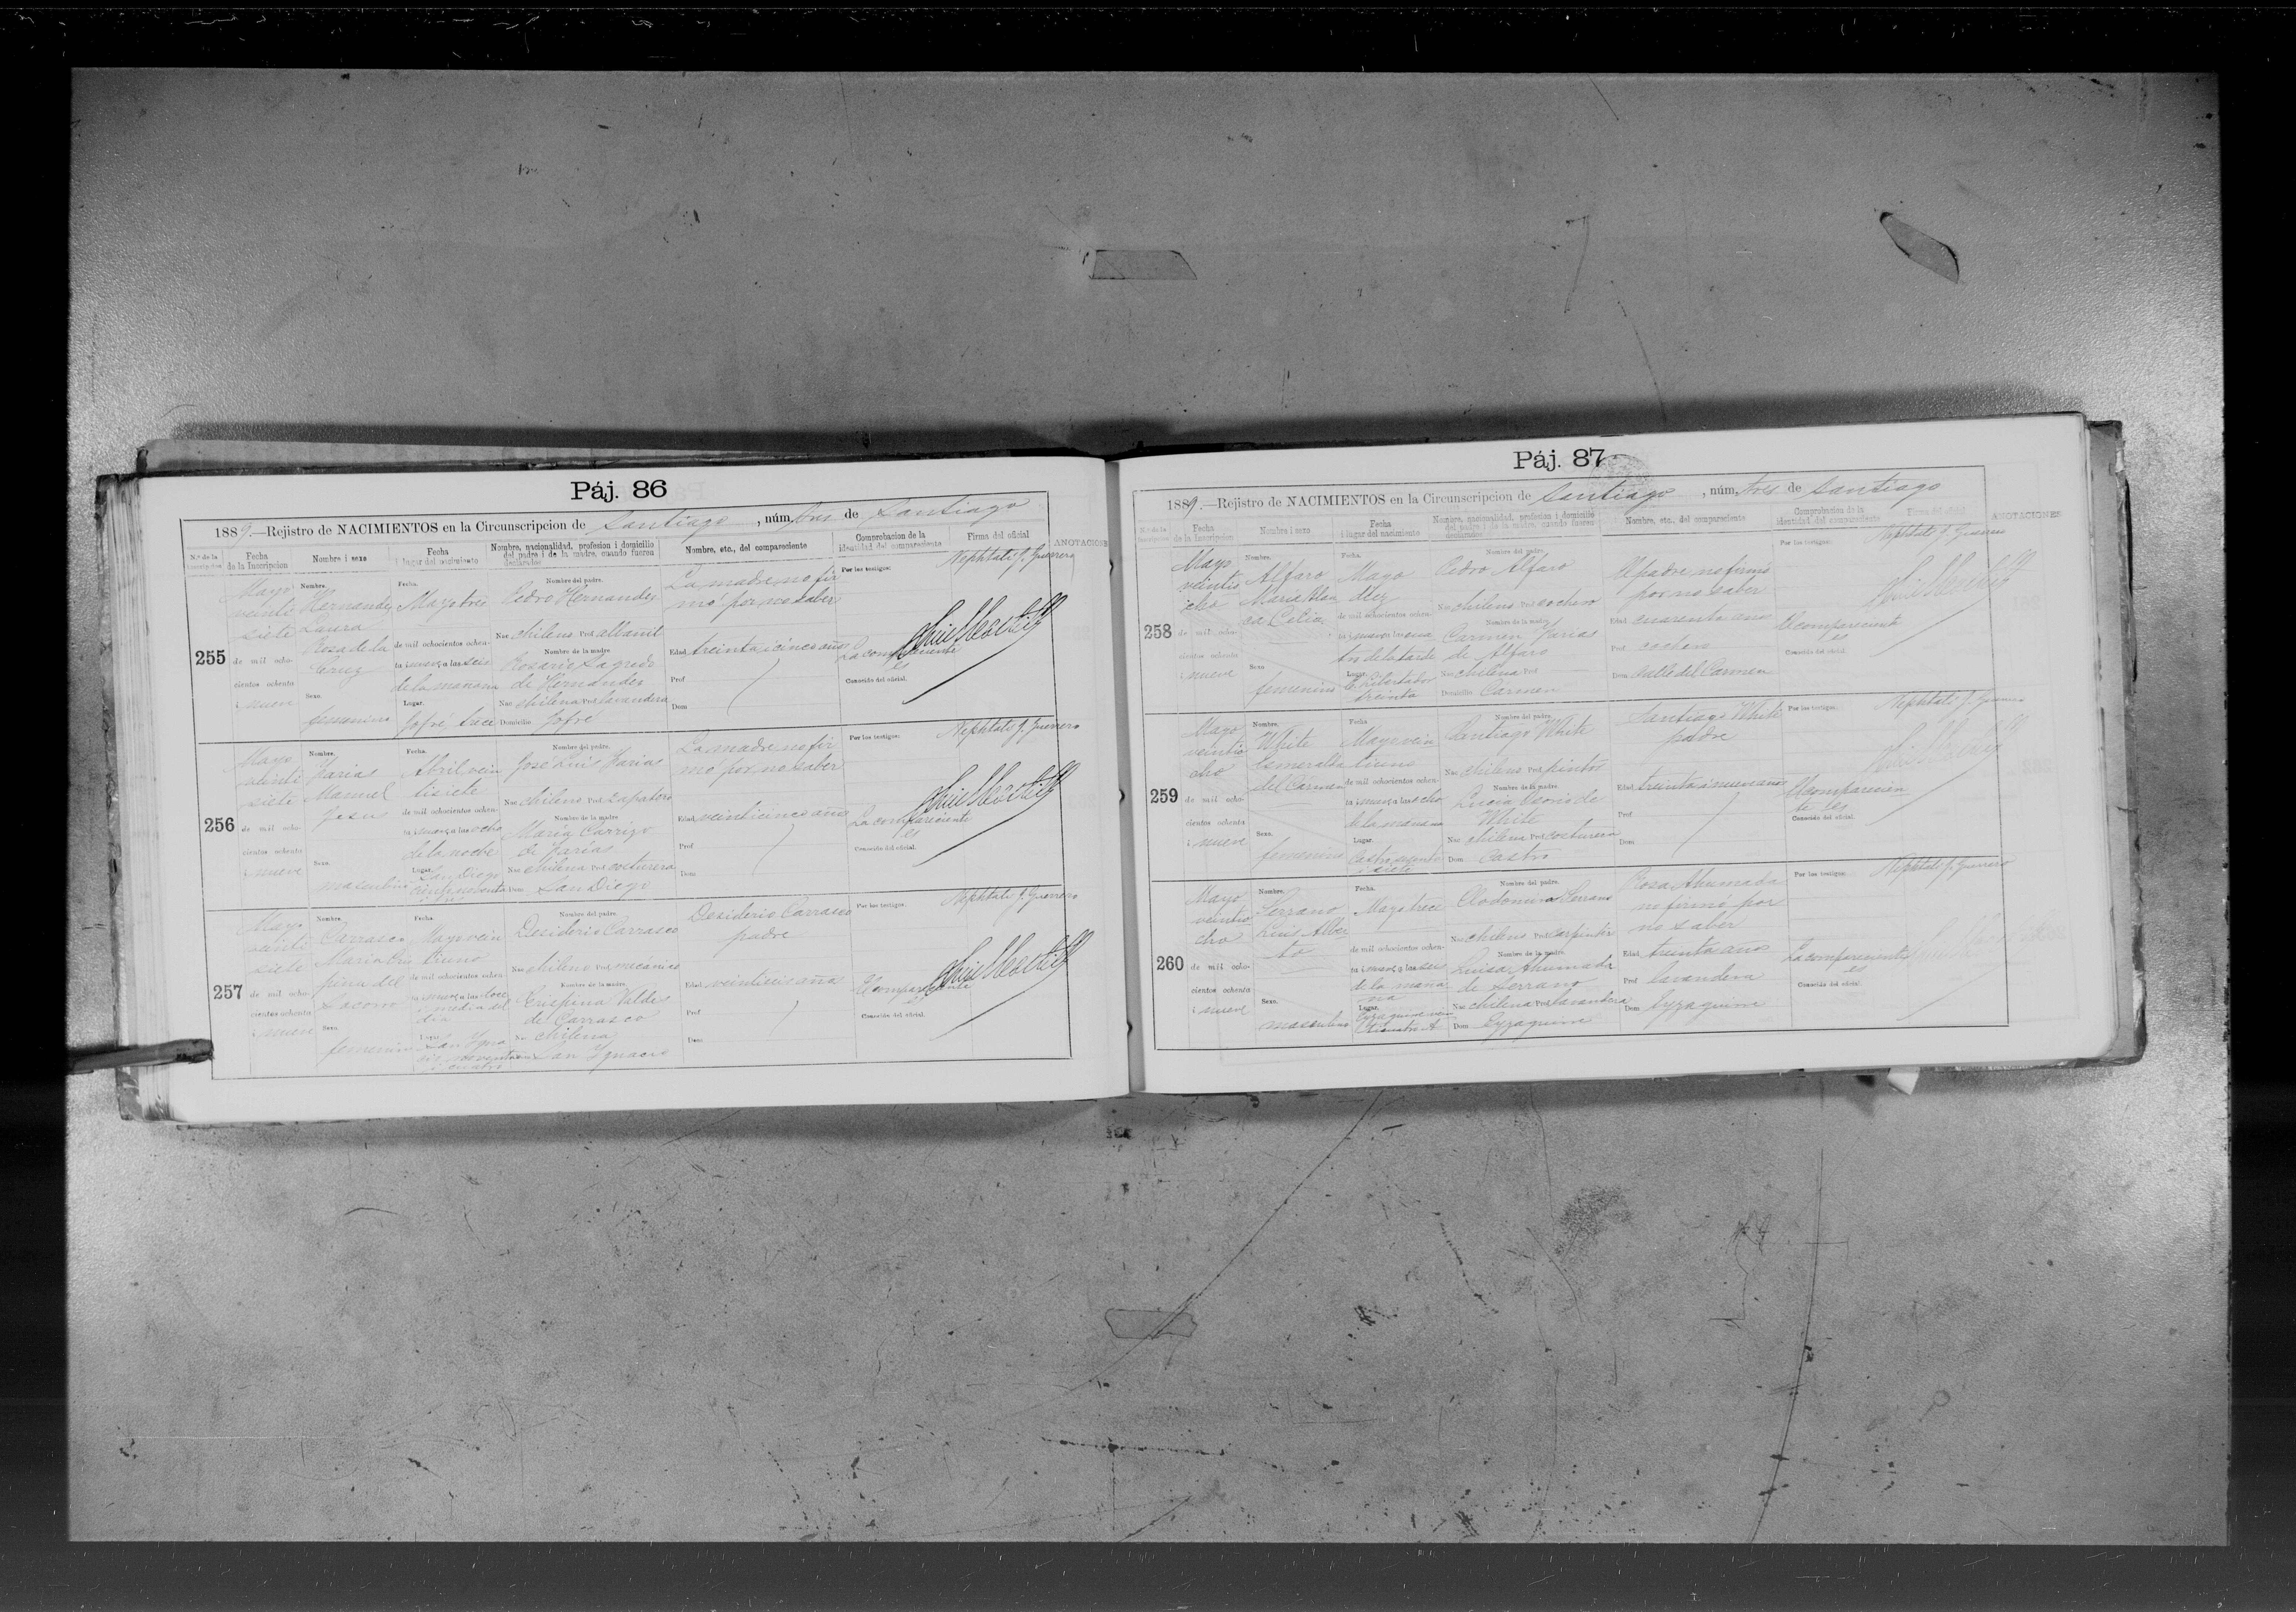 Páj. 86
1889.—Rejistro de NACIMIENTOS en la Circunscripcion de Santiago, núm. tres de Santiago
N.º de la inscripcion
Fecha de la Inscripcion
Nombre i sexo
Fecha i lugar del nacimiento
Nombre, nacionalidad, profesion i domicilio del padre i de la madre, cuando fueren declarados
Nombre, etc., del compareciente
Comprobacion de la identidad del compareciente
Firma del oficial
ANOTACIONES
255
Mayo
veinti
siete
de mil ocho-
cientos ochenta
i nueve
Nombre.
Hernandez
Laura
Rosa de la
Cruz
Sexo.
femenino
Fecha.
Mayo tres
de mil ochocientos ochen-
ta i nueve a las seis
de la mañana
Lugar.
Jofré trece
Nombre del padre.
Pedro Hernandez
Nac. chileno Prof. albanil
Nombre de la madre
Rosario Sagredo
de Hernandez
Nac. chilena Prof. lavandera
Domicilio Jofré
La madre, no fir
mó por no saber
Edad treinta i cinco años
Prof
Dom
Por los testigos:
La compareciente
es
Conocido del oficial.
Nephtalí J. Guerrero
256
Mayo
veinti
siete
de mil ocho-
cientos ochenta
i nueve
Nombre.
Farias
Manuel
Jesus
Sexo.
masculino
Fecha.
Abril vein
tisiete
de mil ochocientos ochen-
ta i nueve a las ocho
de la noche
Lugar. San Diego
Nombre del padre.
José Luis Farias
Nac chileno Prof. zapatero
Nombre de la madre
María Carrizo
de Farías
Nac chilena Prof costurera
Dom San Diego
La madre, no fir
mó por no saber
Edad veinticinco años
Prof
Dom
Por los testigos:
La compareciente
es
Conocido del oficial.
Nephtalí J. Guerrero
257
Mayo
veinti
siete
de mil ocho-
cientos ochenta
i nueve
Nombre
Carrasco
Maria Cris
pina del
Sexo
femenino
Fecha
Mayo vein
tiuno
de mil ochocientos ochen-
ta i nueve a las doce
i media del
dia
Lugar San Ygna
cio noventa
i cuatro
Nombre del padre.
Desiderio Carrasco
Nac chileno Prof mecánico
Nombre de la madre
Crispina Valdes
de Carrasco
Nac chilena
San Ygnacio
Desiderio Carrasco
padre
Edad
Prof
Dom
Por los testigos.
El compareciente
es
Conocido del oficial.
Nephtalí J. Guerrero
Páj. 87
1889.—Rejistro de NACIMIENTOS en la Circunscripcion de Santiago, núm. tres de Santiago
N.º de la inscripcion
Fecha de la Inscripcion
Nombre i sexo
Fecha i lugar del nacimiento
Nombre, nacionalidad, profesion i domicilio del padre i de la madre, cuando fueren declarados
Nombre, etc., del compareciente
Comprobacion de la identidad del compareciente
Firma del oficial
ANOTACIONES
258
Mayo
veintio
cho
de mil ocho-
cientos ochenta
i nueve
Nombre.
Alfaro
Sexo
femenino
Fecha.
Mayo
diez
de mil ochocientos ochen-
ta i nueve a las cua
tro de la tarde
Lugar.
El Libertador
treinta
Nombre del padre
Pedro Alfaro
Nac chileno Prof cochero
Nombre de la madre
Carmen Farias
de Alfaro
Nac chilena Prof
Domicilio Carmen
El padre, no firmó
por no saber
Edad cuarenta años
Prof cochero
Dom Calle del Carmen
Por los testigos:
El compareciente
es
Conocido del oficial.
Nephtalí J. Guerrero
259
Mayo
veintio
cho
de mil ocho-
cientos ochenta
i nueve
Nombre.
White
Esmeralda
del Cármen
Sexo.
femenino
Fecha
Mayo vein
tiuno
de mil ochocientos ochen-
ta i nueve a las ocho
de la mañana
Lugar.
Castro sesenta
i siete
Nombre del padre.
Santiago White
Nac chileno Prof pintor
Nombre de la madre
Lucia Osorio de
White
Nac chilena Prof costurera
Dom Castro
Santiago White
padre
Edad treinta i nueve años
Prof
Dom
Por los testigos:
El comparecien
te es
Conocido del oficial.
Nephtalí J. Guerrero
260
Mayo
veintio
cho
de mil ocho-
cientos ochenta
i nueve
Nombre.
Serrano
Luis Alber
to
Sexo.
masculino
Fecha.
Mayo trece
de mil ochocientos ochen-
ta i nueve a las seis
de la maña
na
Lugar.
Nombre del padre.
Clodomiro Serrano
Nac chileno Prof carpintero
Nombre de la madre
Luisa Ahumada
de Serrano
Nac chilena Prof lavandera
Dom Eyzaguirre
Rosa Ahumada
no firmó por
no saber
Edad treinta años
Prof lavandera
Dom Eyzaguirre
Por los testigos:
La compareciente
es
Conocido del oficial.
Nephtalí J. Guerrero